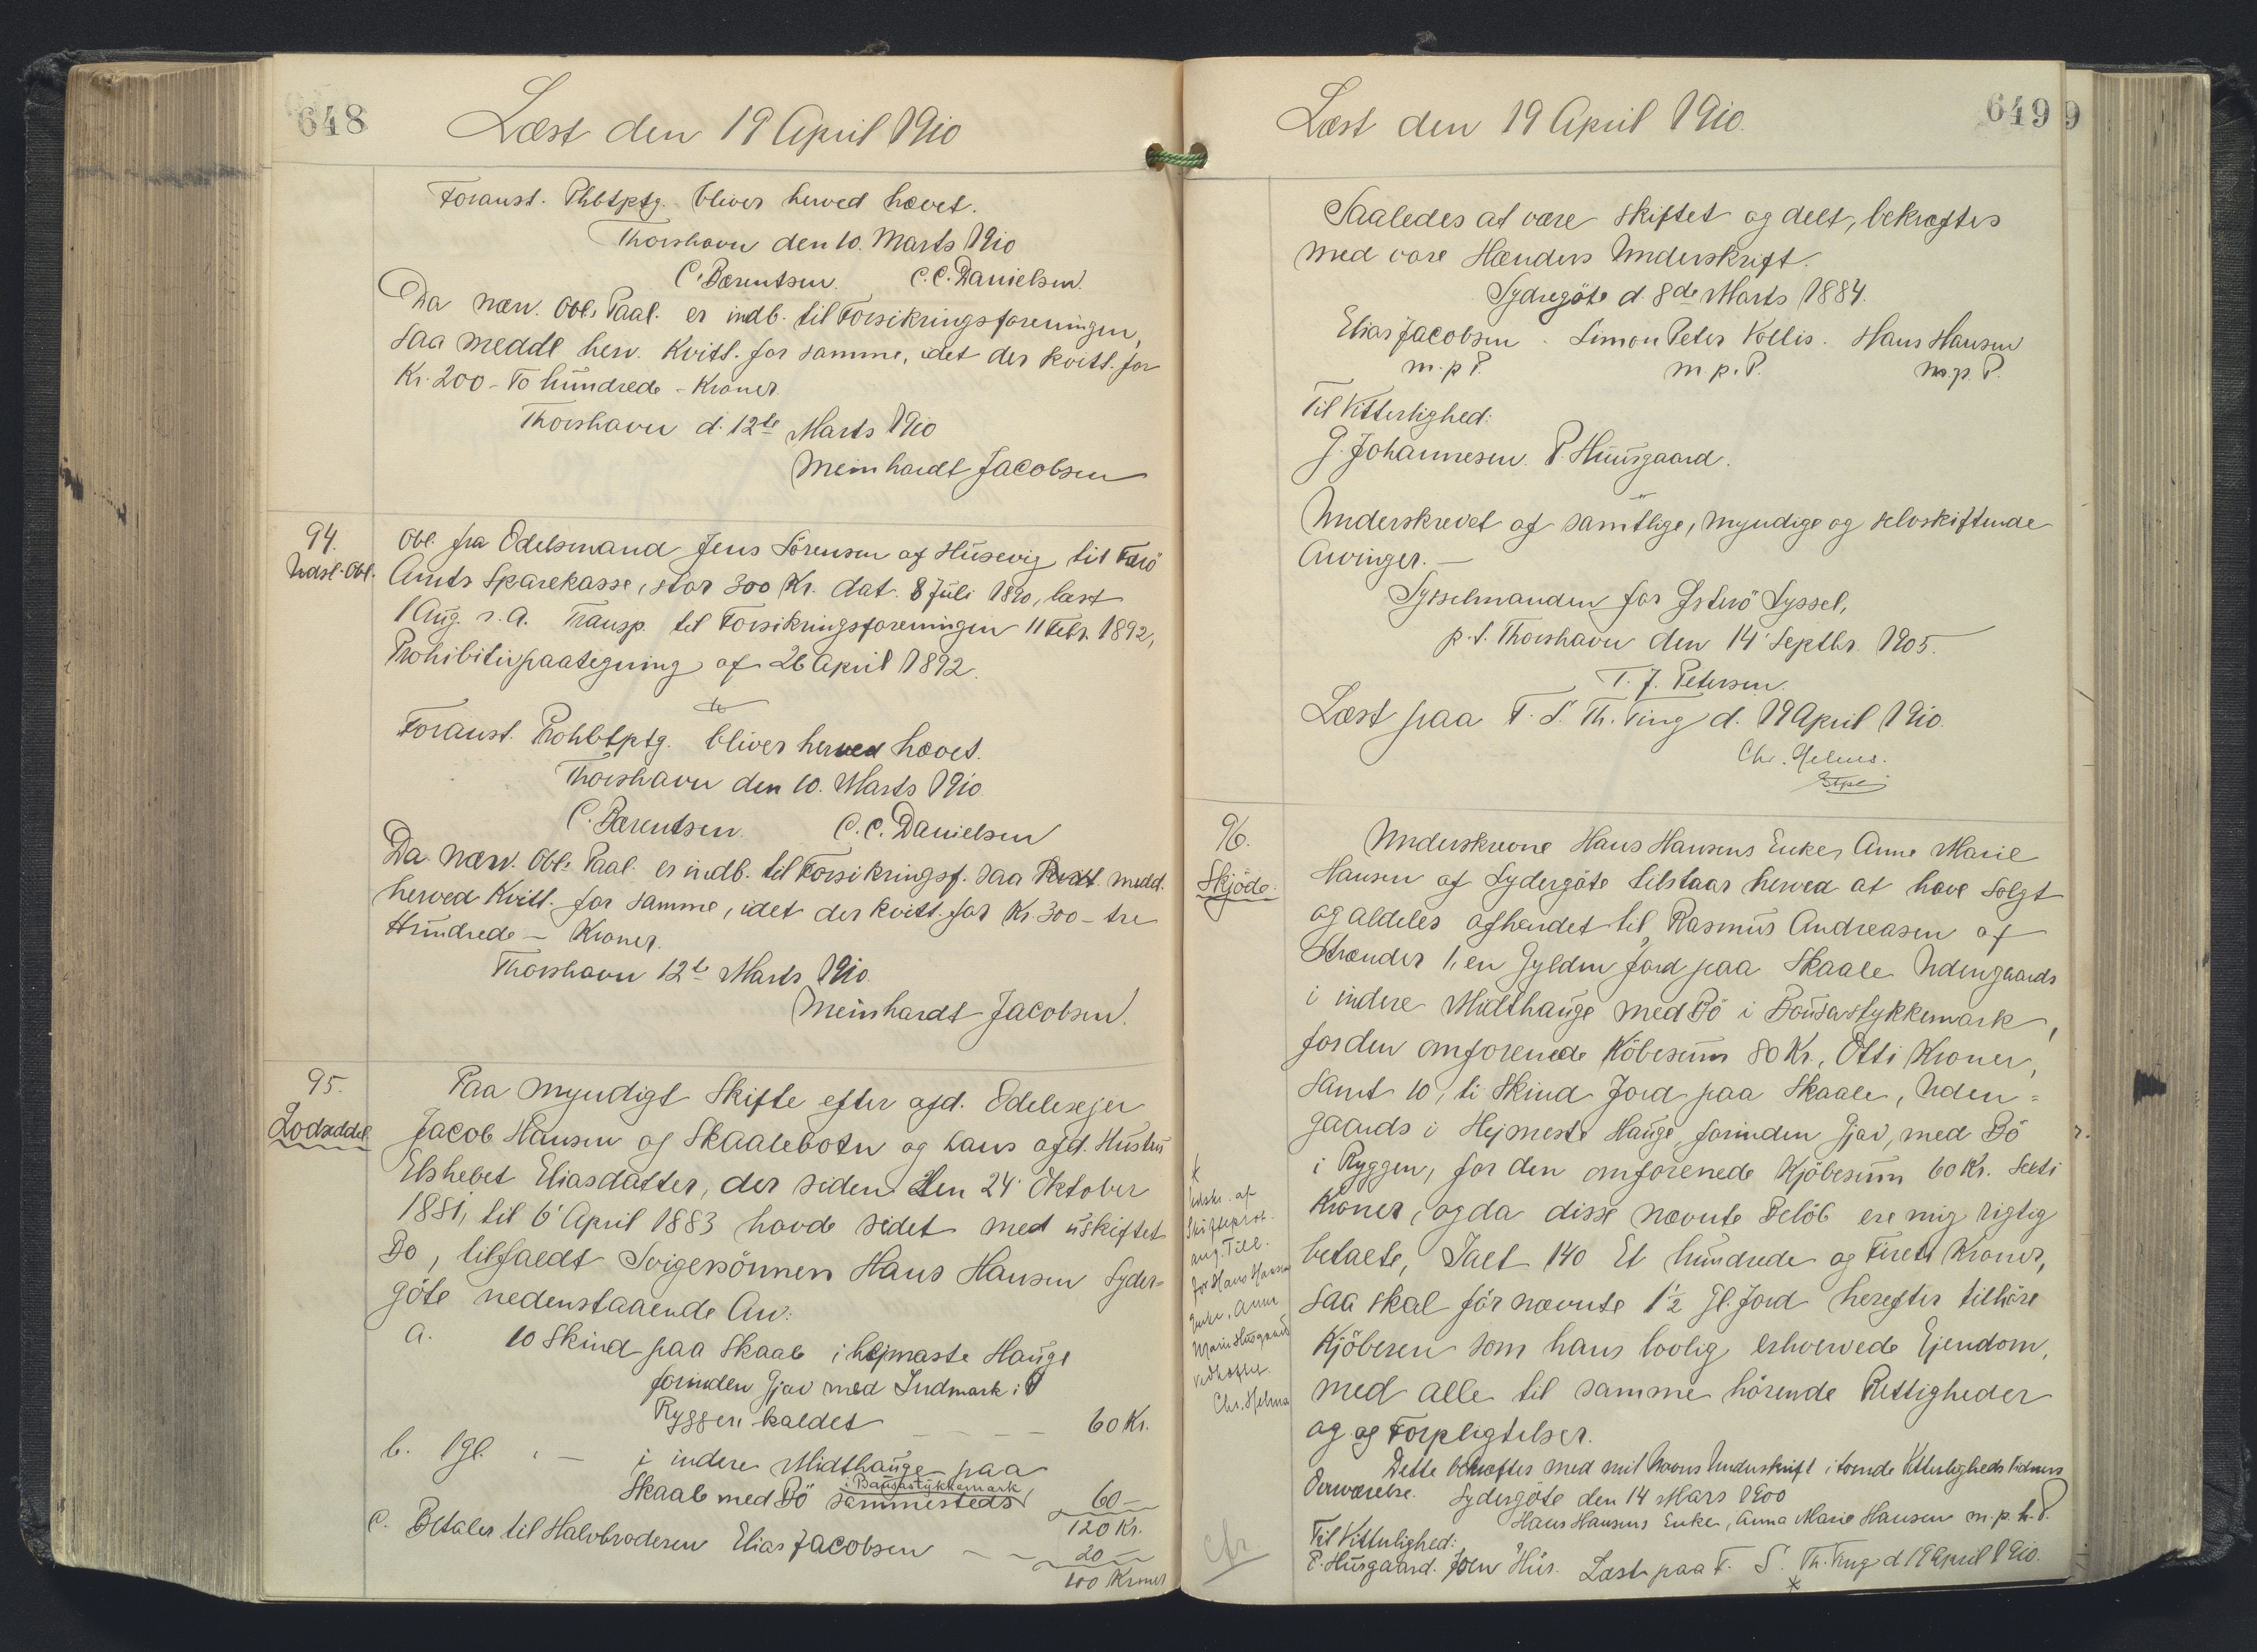 648
Læst den 19 April 1910
Foranst. Phbtptg. bliver herved hævet.
Thorshavn den 10. Marts 1910
C. Bærentsen. C. C. Danielsen.
Da næv. Obl. Paal. er indb. til Forsikringsforeningen,
saa meddl herv. Kvitt. for samme, idet der kvitt. for
Kr. 200 - To hundrede - Kroner.
Thorshavn d. 12te Marts 1910
Meinhardt Jacobsen
94.
Udsl. Obl.
Obl. fra Odelsmand Jens Sörensen af Husevig til Færö
Amts Sparekasse, stor 300 Kr. dat. 8 Juli 1890, læst
1 Aug. s. A. Transp. til Forsikringsforeningen 11 Febr. 1892,
Prohibitivpaategning af 26 April 1892.
Foranst. Prohbtptg. bliver herved hævet.
Thorshavn den 10. Marts 1910.
C. Bærentsen. C. C. Danielsen
Da næv. Obl. Paal. er indb. til Forsikringsf. saa medd.
herved Kvitt. for samme, idet der kvitt. for Kr. 300 - tre
Hundrede - Kroner.
Thorshavn 12te Marts 1910.
Meinhardt Jacobsen.
95.
Lodseddel
Paa myndigt Skifte efter afd. Odelsejer
Jacob Hansen af Skaalebotn og hans afd. Hustru
Elshebet Eliasdatter, der siden den 24' Oktober
1881, til 6' April 1883 havde sidet med uskiftet
Bo, tilfaldt Svigersönnen Hans Hansen Syder=
göte nedenstaaende Arv:
a. 10 Skind paa Skaale i hejmaste Hauge
forinden Gjav med Indmark i
Ryggen kaldet - - - 60 Kr.
b. 1 gl. " - i indere Midthauge paa
Skaale med Bö sammesteds i Bausastykkemark 60 -
120 Kr.
c. Betaler til Halvbroderen Elias Jacobsen - - 20 -
100 Kroner
649
9
Læst den 19 April 1910.
Saaledes at være skiftet og delt, bekræftes
med vore Hænders Underskrift.
Sydregöte d. 8de Marts 1884.
Elias Jacobsen . Simon Peter Vollis . Hans Hansen
m. p. P. m. p. P. m. p. P.
Til Vitterlighed:
J. Johannesen. P. Huusgaard.
Underskrevet af samtlige, myndige og selvskiftende
Arvinger. -
Sysselmanden for Österö Syssel,
p. t. Thorshavn den 14' Septbr. 1905.
T. J. Petersen.
Læst paa F. S. Th. Ting d. 19 April 1910.
Chr. Helms.
96.
Skjöde.
Underskrevne Hans Hansens Enke, Anne Marie
Hansen af Sydergöte tilstaar herved at have solgt
og aldeles afhendet til, Rasmus Andreasen af
Strænder 1, en Gylden Jord paa Skaale Udengaards
i indere Midthauge med Bö i Bousastykkemark,
for den omforenede Köbesum 80 Kr., Otti Kroner,
samt 10, ti Skind Jord paa Skaale, Uden=
gaards i Hejmeste Hauge, forinden Gjav, med Bö
i Ryggen, for den omforenede Kjöbesum 60 Kr. Seksti
Kroner, og da disse nævnte Belöb ere mig rigtig
betalte, Ialt 140 Et hundrede og Fireti Kroner,
saa skal för nævnte 1½ Gl. Jord herefter tilhöre
Kjöberen som hans lovlig erhvervede Ejendom,
med alle til samme hörende Rettigheder
og og Forpligtelser.
Dette bekræftes med mit Navns Underskrift i tvende Vitterligheds Vidners
Overværelse. Sydergöte den 14 Mars 1900
Hans Hansens Enke, Anna Marie Hansen m. p. h. P.
Til Vitterlighed:
P. Husgaard. Joen Hús. Læst paa F. S. Th. Ting d 19 April 1910.
*
*
Udskr. af
Skifteprot.
ang. Till.
for Hans Hansens
Enke, Anne
Marie Husgaard
vedhæftet.
Chr. Helms
cfr.